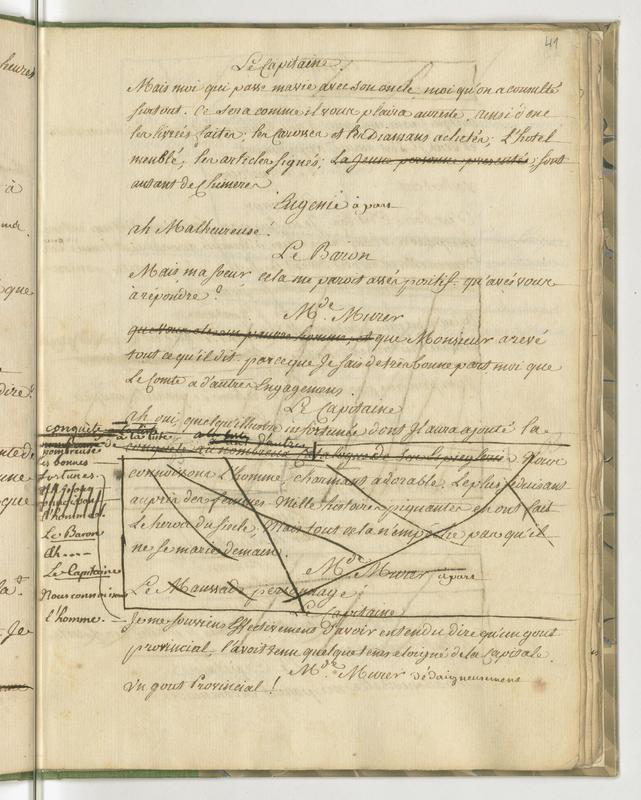 41
Le Capitaine.
Mais moi qui passe ma vie avec son oncle, moi qu'on a consulté
surtout. Ce sera comme il vous plaira aureste. ainsi donc
les livrées faites; les Carosses et les Diamans achetés; L'hotel
meublé; les articles signés; la jeune personne presentée; sont
autant de Chimeres
Eugenie à part
ah Malheureuse!
Le Baron
Mais, ma Soeur, cela me paroit assés positif. qu'avés vous
à répondre?
Mde. Murer
que vous etes un pauvre homme, et que Monsieur a revé
tout ce qu'il dit, parceque Je sais de très bonne part moi que
Le Comte a d'autres Engagemens.
Le Capitaine
ah oui, quelqu'illustre infortunée dont Il aura ajouté la
conquête
à la liste
d'autres
nombreuse de
ses bonnes
fortunes.
l'homme.
Le Baron
Ah....
Le Capitaine
Nous connoissons
l'homme.
connoissons L'homme, charmant adorable. Le plus séduisant
auprès des femmes. Mille histoires piquantes en ont fait
Le heros du siecle, Mais tout cela n'empêche pas qu'il
ne se marie demain.
Mde. Murer à part
Le Maussade personnage!
Le Capitaine
Je me souviens Effectivement d'avoir entendu dire qu'un gout
provincial, l'avoit tenu quelque tems eloigné de la Capitale.
Mde. Murer dédaigneusement
Un gout Provincial!